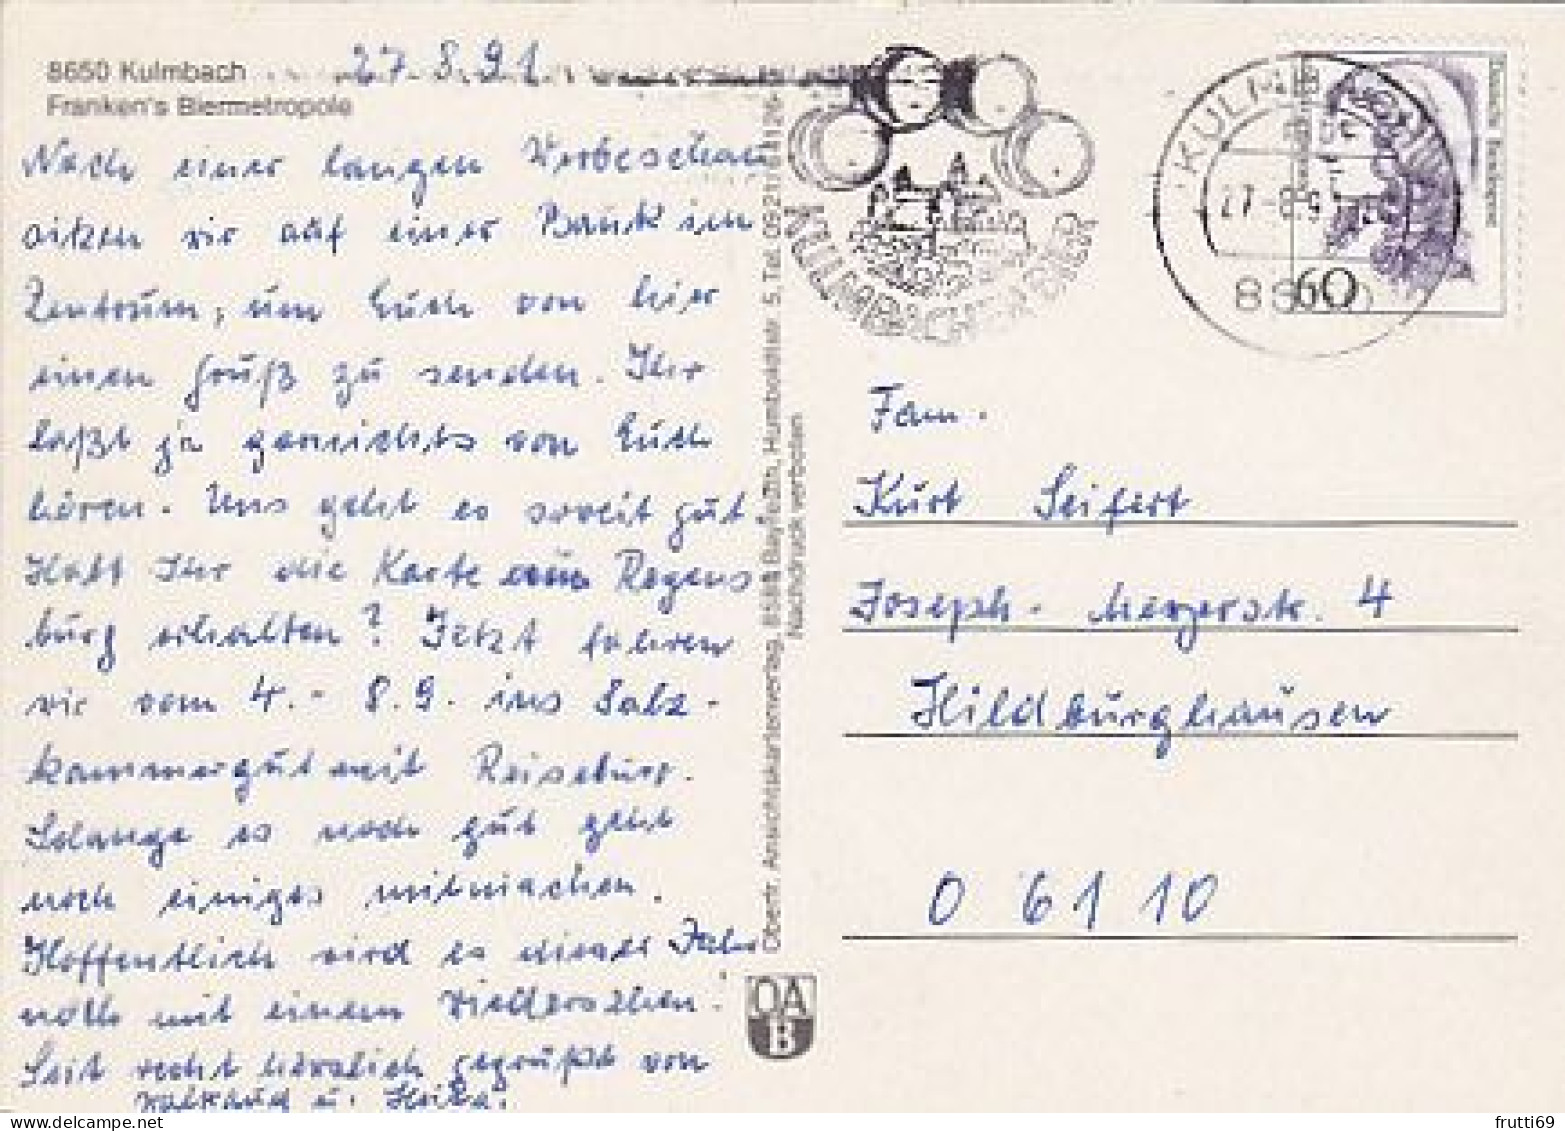 8650 Kulmbach
Franken's Biermetropole
27.8.91
Nach einer langen Werbeschau
sitzen wir auf einer Bank im
Zentrum, um Euch von hier
einen Gruß zu senden. Ihr
laßt ja garnichts von Euch
hören. Uns geht es soweit gut.
Habt Ihr die Karte aus Regens
burg erhalten? Jetzt fahren
wir vom 4.- 8.9. ins Salz-
kammergut mit Reisebüro.
Solange es noch gut geht
noch einiges mitmachen.
Hoffentlich wird es dieses Jahr
noch mit einem Wiedersehen!
Seid recht herzlich gegrüßt von
u.
Obernfr. Ansichtskartenverlag, 8580 Bayreuth, Humboldtstr. 5, Tel. 0921
Nachdruck verboten
OA
B
KULMBACHER BIER
KULMB
27.-8.9
60
Deutsche Bundespost
Fam.
Kurt Seifert
Joseph-Meyerstr. 4
Hildburghausen
O 6110
frutti69